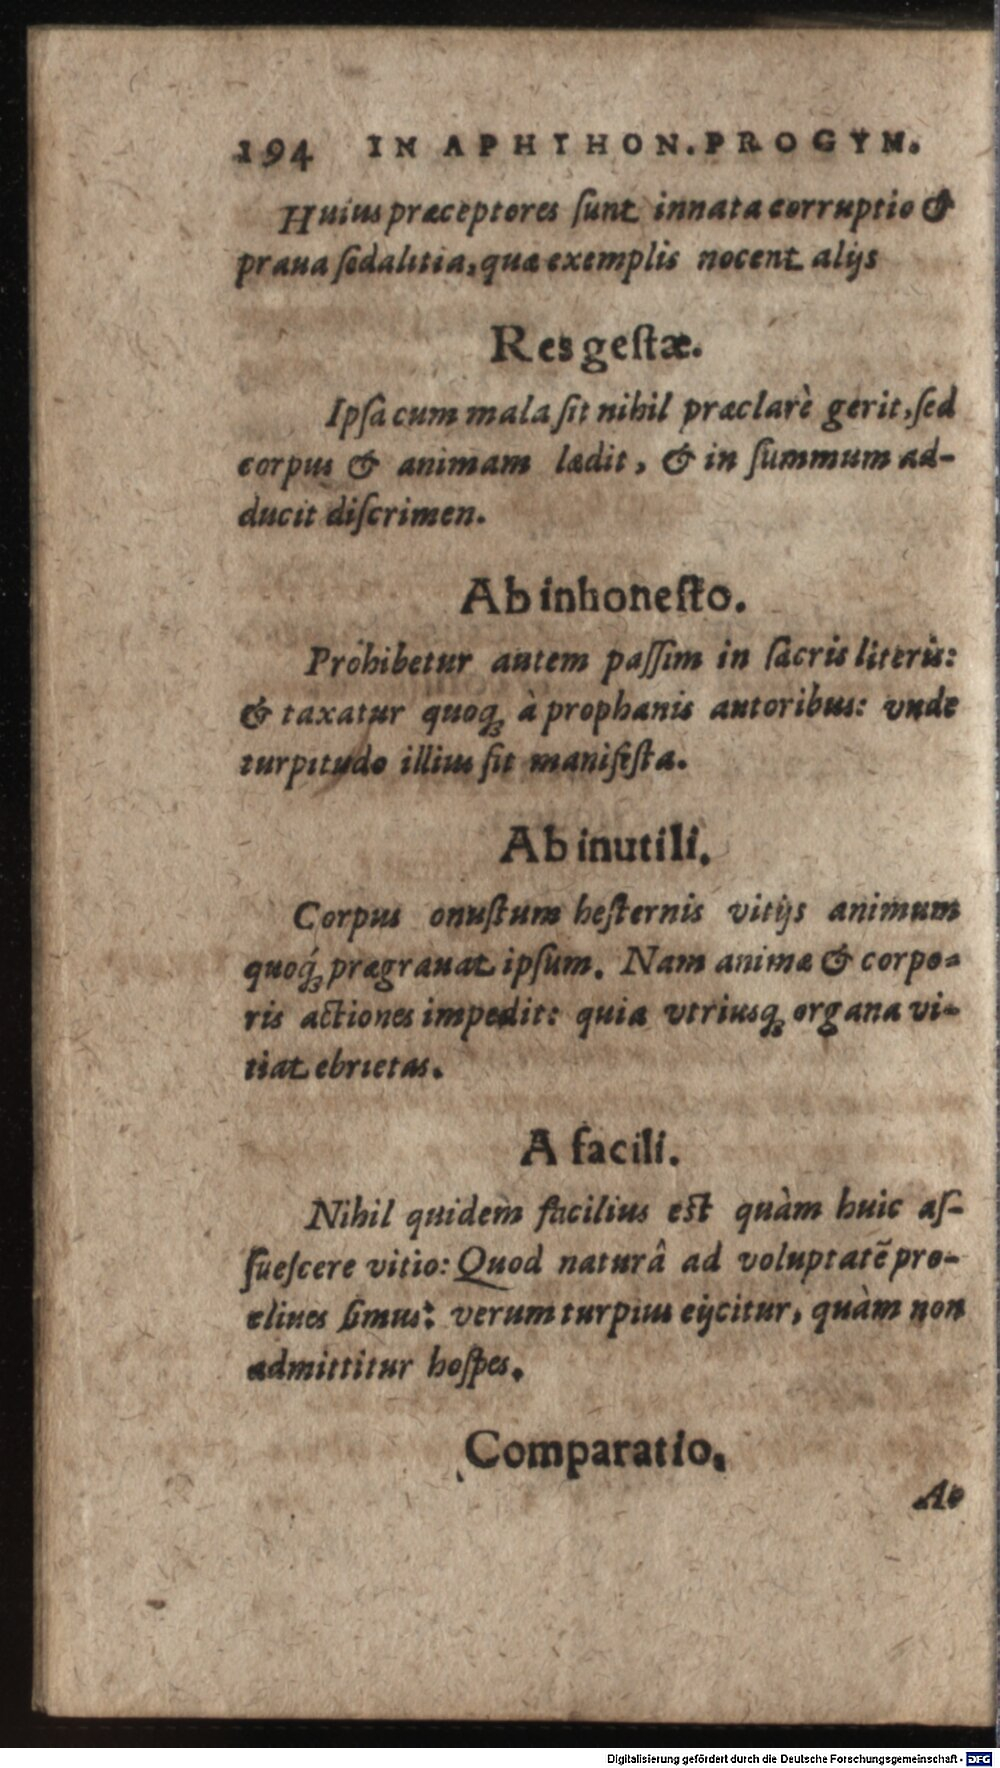 194 IN APHTHON. PROGYM.
Huius præceptores ſunt innata corruptio &
praua ſodalitia, quæ exemplis nocent alijs
Res geſtæ.
Ipſa cum mala ſit nihil præclarè gerit, ſed
corpus & animam lædit, & in ſummum ad-
ducit diſcrimen.
Ab inhoneſto.
Prohibetur autem paſſim in ſacris literis:
& taxatur quoq; à prophanis autoribus: vnde
turpitudo illius ſit manifeſta.
Ab inutili.
Corpus onuſtum heſternis vitijs animum
quoq́; prægrauat ipſum. Nam animæ & corpo-
ris actiones impedit: quia vtriusq; organa vi-
tiat ebrietas.
A facili.
Nihil quidem facilius eſt quàm huic aſ-
ſueſcere vitio: Quod naturâ ad voluptatē pro-
cliues ſimus: verum turpius eijcitur, quàm non
admittitur hoſpes.
Comparatio.
Digitalisierung gefördert durch die Deutsche Forschungsgemeinschaft - DFG